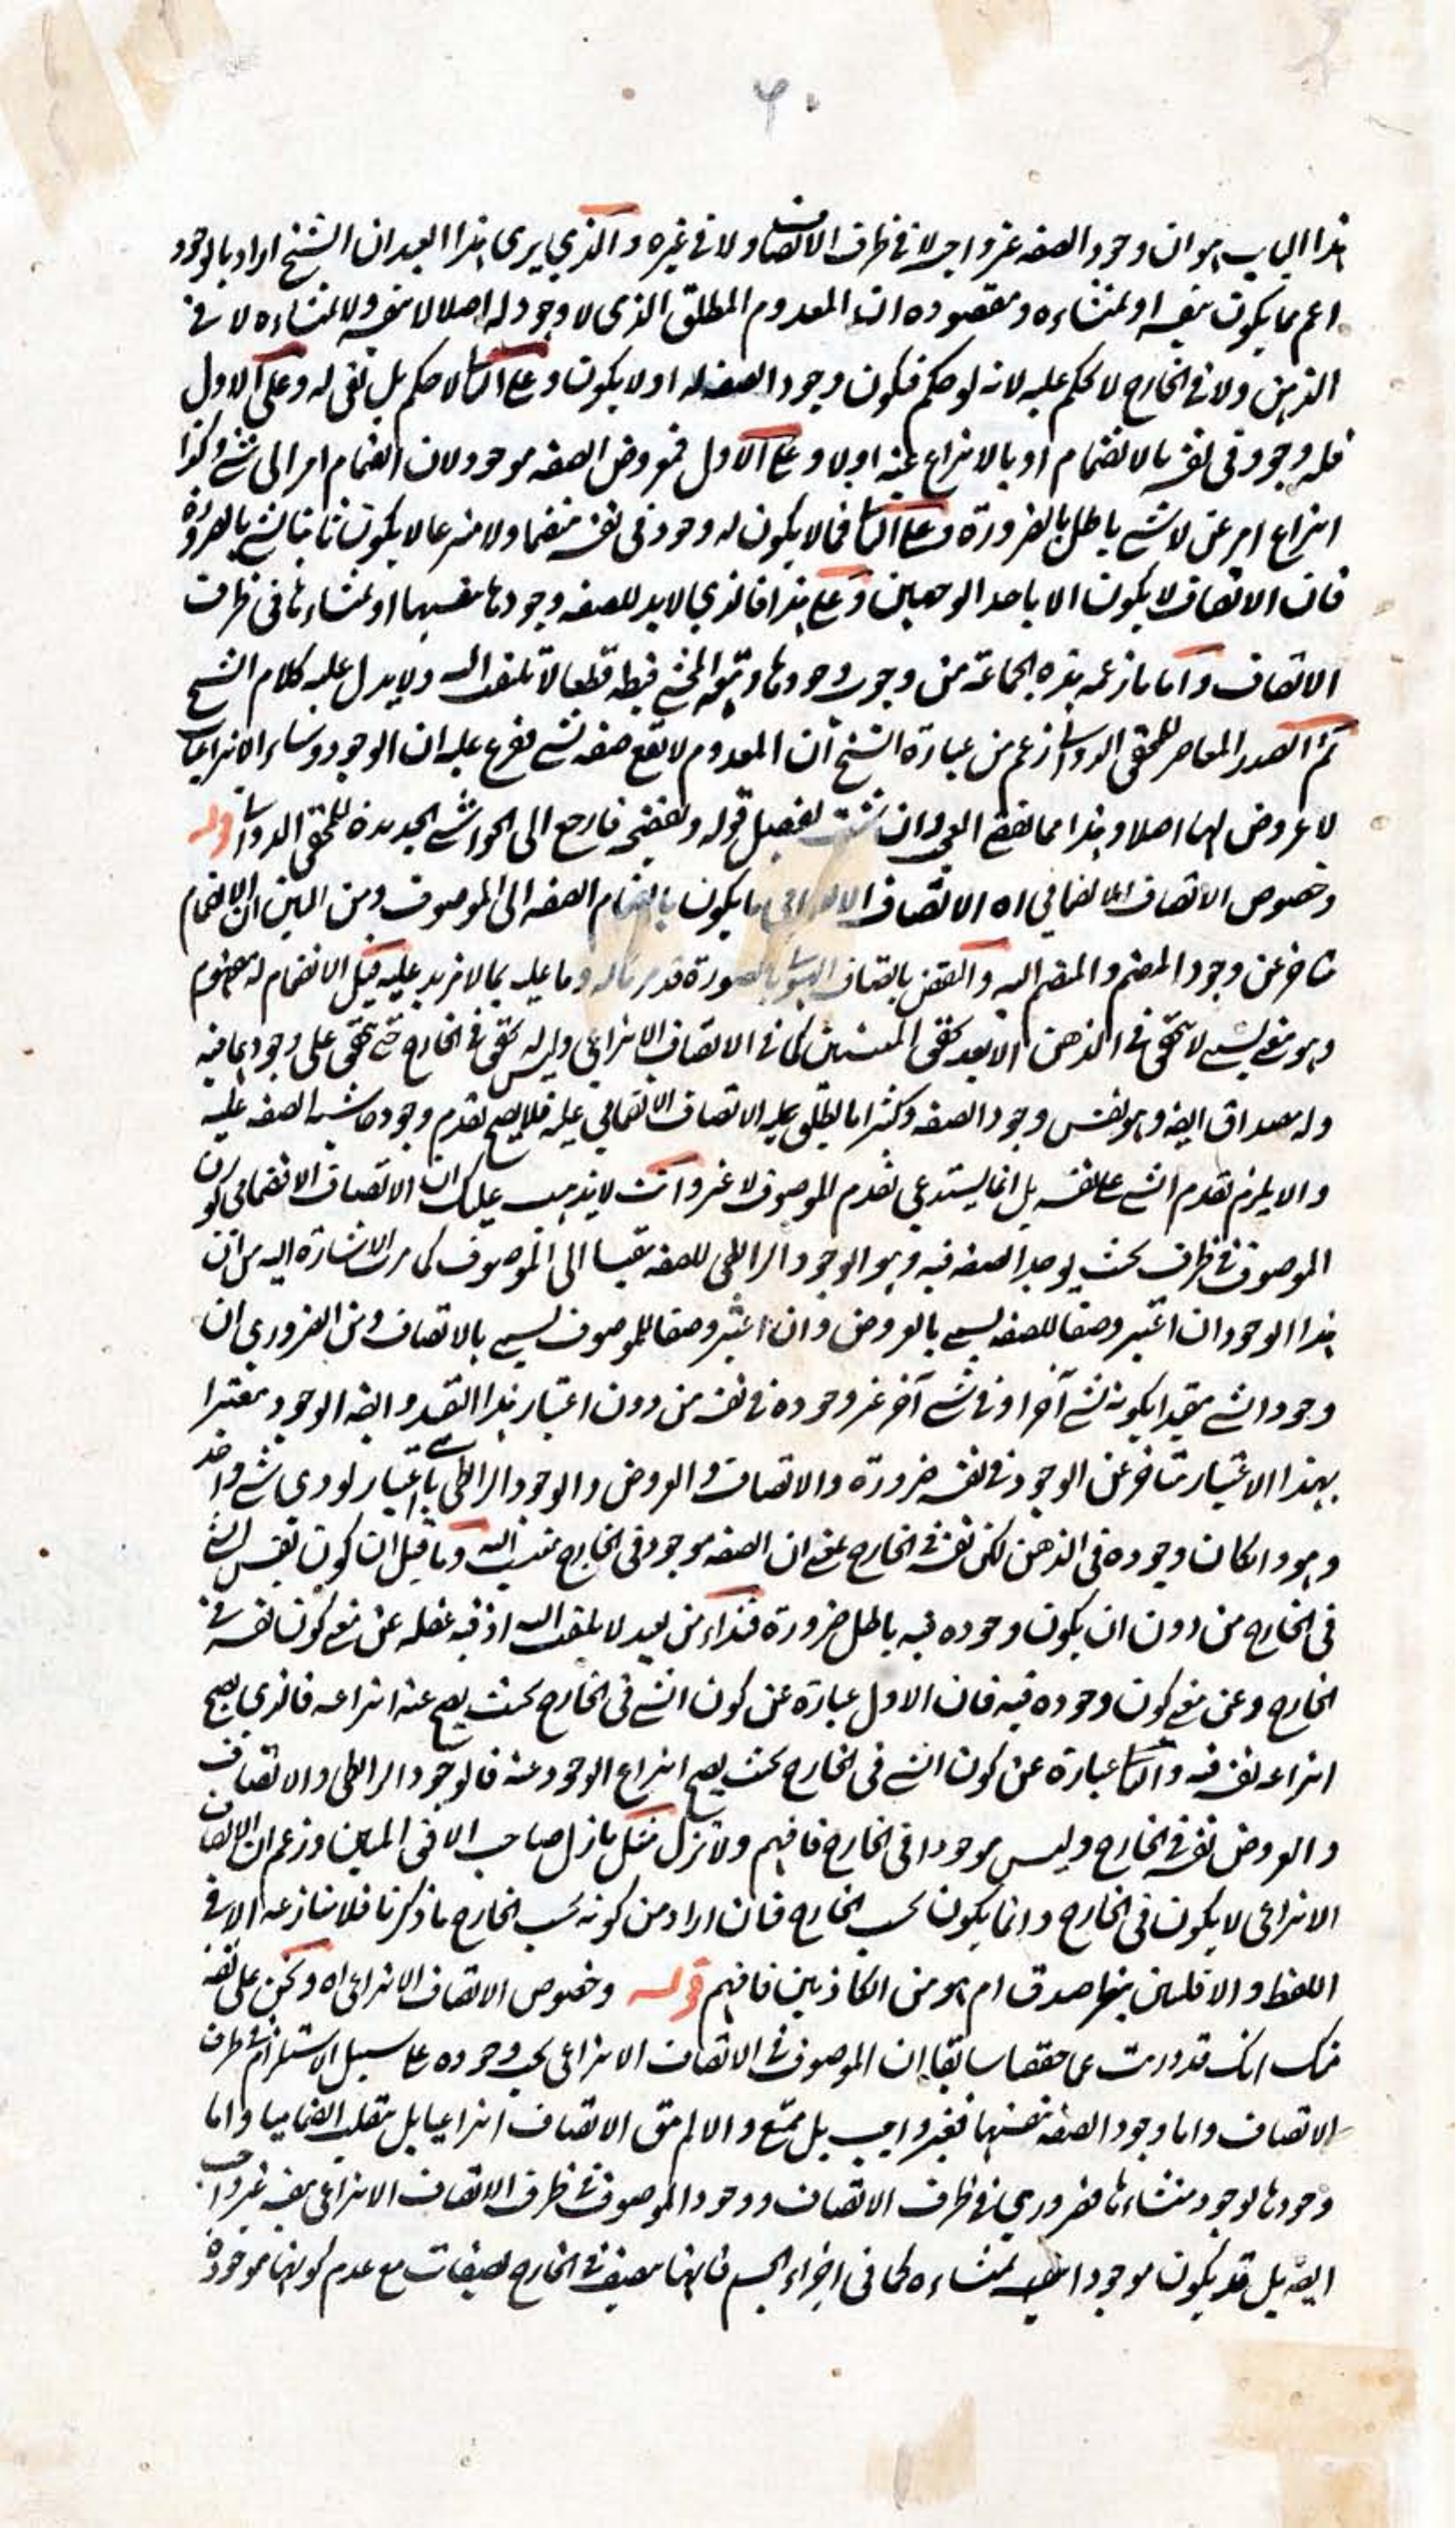 ٦٠
هذا الباب هو ان وجود الصفه غير واجب لا فى ظرف الاتصاف ولا فى غيره والذي يرى هذا العبد ان الشيخ اراد بالوجود
اعم مما يكون بنفسه او لمنشاءه ومقصوده ان المعدوم المطلق الذى لا وجود له اصلا لا بنفسه ولا لمنشاءه لا فى
الذهن ولا فى الخارج لا يحكم عليه لانه لو حكم فيكون وجود الصفه له او لا يكون وعلى الثانى لا حكم بل نفى له وعلى الاول
فله وجود فى نفسه بالانضمام او بالانتزاع عنه اولا وعلى الاول فمعروض الصفه موجود لان انضمام امر الى شى وكذا
انتزاع امر عن لا شى باطل بالضرورة وعلى الثانى فما لا يكون له وجود فى نفسه منضما ولا منتزعا لا يكون ثابتا لشى بالضرورة
فان الاتصاف لا يكون الا باحد الوجهين وعلى هذا فالذي لا بد للصفه وجودها بنفسها او لمنشاءها فى ظرف
الاتصاف واما ما زعمه هذه الجماعة من وجوب وجودها وتبعه المحشى فبطله قطعا لا تلتفت اليه ولا يدل عليه كلام الشيخ
ثم الصدر المعاصر للمحقق الدوانى زعم من عبارة الشيخ ان المعدوم لا يقع صفه لشى ففرع عليه ان الوجود وساير الانتزاعيات
لا عروض لها اصلا وهذا مما يقضى العجب وان شئت تفصيل قوله وتفضيحه فارجع الى الحواشى الجديدة للمحقق الدوانى قوله
وخصوص الاتصاف الانضمامي اه الاتصاف الانضمامي ما يكون بانضمام الصفه الى الموصوف ومن البين ان الانضمام
متاخر عن وجود المنضم والمنضم اليه والنقض باتصاف الهيولى بالصورة قد مر ماله وما عليه بما لا مزيد عليه قيل الانضمام له مفهوم
وهو معنى نسبى لا يتحقق فى الذهن الا بعد تحقق المنتسبين كما فى الاتصاف الانتزاعي وليس له تحقق فى الخارج حتى يتحقق على وجودهما فيه
وله مصداق ايضه وهو نفس وجود الصفه وكثيرا ما يطلق عليه الاتصاف الانضمامي عليه فلا يصح تقدم وجود حاشيه الصفه عليه
والا يلزم تقدم الشى على نفسه بل انما يستدعي تقدم الموصوف لا غير وانت لا يذهب عليك ان الاتصاف الانضمامي كون
الموصوف فى ظرف بحيث يوجد الصفه فيه وهو الوجود الرابطى للصفه مقيسا الى الموصوف كما مر الاشارة اليه من ان
هذا الوجود ان اعتبر وصفا للصفه يسمى بالعروض وان اعتبر وصفا للموصوف يسمى بالاتصاف ومن الضروري ان
وجود الشى مقيدا بكونه لشى آخر او فى شى آخر غير وجوده فى نفسه من دون اعتبار هذا القيد وايضه الوجود معتبرا
بهذا الاعتبار متاخر عن الوجود فى نفسه ضرورة والاتصاف والعروض والوجود الرابطى باعتبار يودى شى واحد
وهو وان كان وجوده فى الذهن لكن نفسه فى الخارج بمعنى ان الصفه موجود فى الخارج منتسب اليه وما قيل ان كون نفس الشى
فى الخارج من دون ان يكون وجوده فيه باطل ضرورة فنداء من بعيد لا يلتفت اليه اذ فيه غفله عن معنى كون نفسه فى
الخارج وعن معنى كون وجوده فيه فان الاول عبارة عن كون الشى فى الخارج بحيث يصح عنه انتزاعه فالذي يصح
انتزاعه نفسه فيه والثانى عبارة عن كون الشى فى الخارج بحيث يصح انتزاع الوجود عنه فالوجود الرابطى والاتصاف
والعروض نفسه فى الخارج وليس موجودا فى الخارج فافهم ولا تزل مثل ما زل صاحب الافق المبين وزعم ان الاتصاف
الانتزاعى لا يكون فى الخارج وانما يكون بحسب الخارج فان اراد من كونه بحسب الخارج ما ذكرنا فلا منازعه الا فى
اللفظ والا فلسنن ينظر اصدق ام هو من الكاذبين فافهم قوله وخصوص الاتصاف الانتزاعى اه وكن على ثقه
منك انك قد دريت مما حققنا سابقا ان الموصوف فى الاتصاف الانتزاعى يجب وجوده على سبيل الاستلزام فى ظرف
الاتصاف واما وجود الصفه بنفسها فغير واجب بل ممتنع والا لم يبق الاتصاف انتزاعيا بل ينقلب انضماميا واما
وجودها لوجود منشاءها فضروري فى ظرف الاتصاف ووجود الموصوف فى ظرف الاتصاف الانتزاعى بنفسه غير واجب
ايضه بل قد يكون موجودا بمنشاءه كما فى اجزاء الجسم فانها متصف فى الخارج بصفات مع عدم كونها موجودة